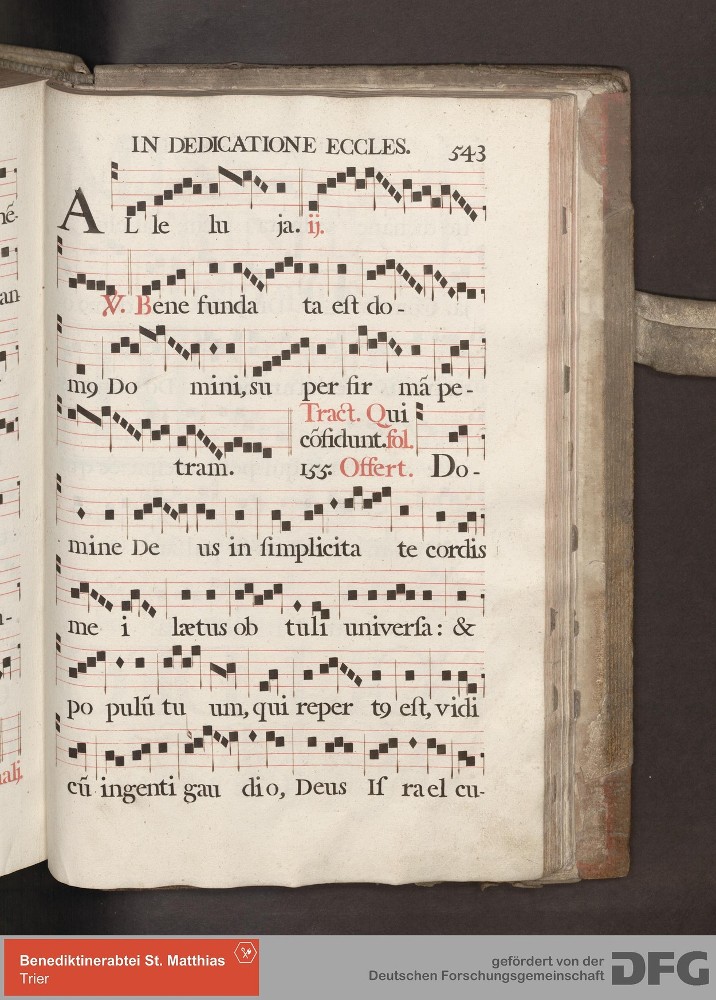 IN DEDICATIONE ECCLES. 543
AL le lu ja. ij.
℣. Bene funda ta eſt do-
m9 Do mini, su per fir mã pe-
Tract. Qui
cõfidunt. fol.
tram. 155. Offert. Do-
mine De us in ſimplicita te cordis
me i lætus ob tuli univerſa: &
po pulũ tu um, qui reper t9 eſt, vidi
cũ ingenti gau dio, Deus Iſ rael cu-
Benediktinerabtei St. Matthias
Trier
gefördert von der
Deutschen Forschungsgemeinschaft DFG